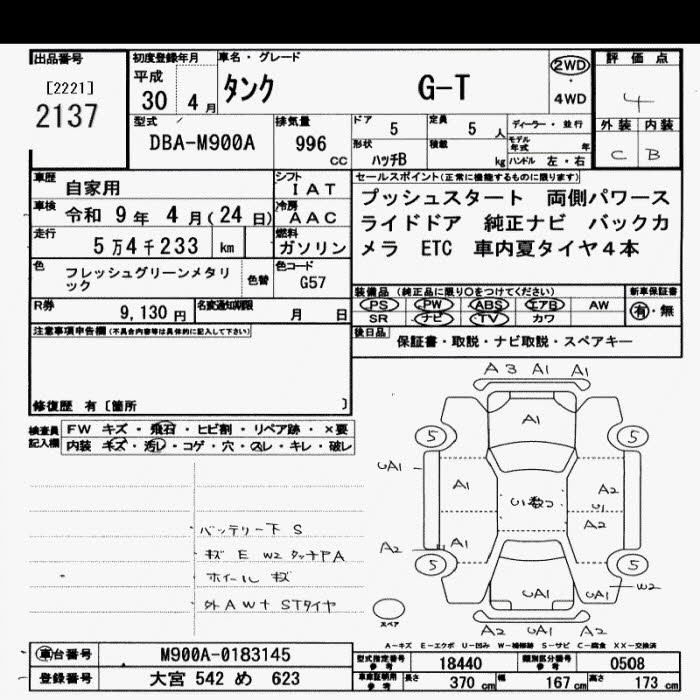 出品番号
[2221]
2137
初度登録年月
平成
30 4月
車名・グレード
タンク G-T
2WD
・
4WD
評価点
4
外装 内装
C B
型式
DBA-M900A
排気量
996
CC
ドア
5
定員
5人
形状
ハッチB
積載
kg
ディーラー・並行
モデル年式 年
ハンドル 左・右
車歴
自家用
車検
令和 9年 4月(24日)
走行
5万4千233 km
色
フレッシュグリーンメタリ
ック
色替
シフト
IAT
冷房
AAC
燃料
ガソリン
色コード
G57
セールスポイント(正常に機能するものに限ります)
プッシュスタート 両側パワース
ライドドア 純正ナビ バックカ
メラ ETC 車内夏タイヤ4本
R券
9,130円
名変通知期限
月 日
装備品(純正品に限り○をつけてください)
PS PW ABS エアB AW
SR ナビ TV カワ
新車保証書
有・無
後日品
保証書・取説・ナビ取説・スペアキー
注意事項申告欄(不具合内容等は具体的に記入して下さい)
修復歴 有〔箇所 〕
検査員
記入欄
FW キズ・飛石・ヒビ割・リペア跡・×要
内装 キズ・汚レ・コゲ・穴・スレ・キレ・破レ
・バッテリー下 S
・キズ E W2 タッチPA
・ホイール キズ
・外AW+STタイヤ
A3 A1 A1
A1
5 5
UA1
A1
U1数コ
A2
U1
A2
A2
A1
5 5
UA1
UA1
W2
A2 UA1 A2
スペア
A-キズ E-エクボ U-凹み W-補修跡 S-サビ C-腐食 XX-交換済
車台番号
M900A-0183145
登録番号
大宮 542 め 623
型式指定番号
参考
18440
類別区分番号
参考
0508
車庫証明用
参考
長さ
370cm
幅
167cm
高さ
173cm